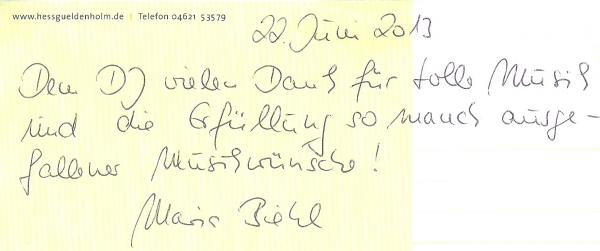 www.hessgueldenholm.de | Telefon 04621 53579
22. Juni 2013
Dem DJ vielen Dank für tolle Musik
und die Erfüllung so manch ausge-
fallener Musikwünsche!
Maria